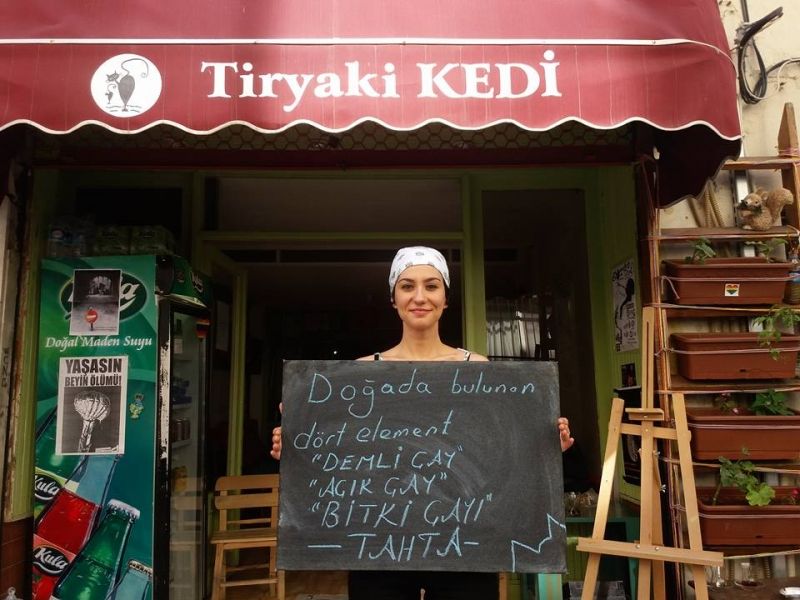 Tiryaki KEDİ
Kula
Doğal Maden Suyu
YAŞASIN
BEYİN ÖLÜMÜ!
Kula
Kula
Doğada bulunan
dört element
"DEMLİ ÇAY"
"AÇIK ÇAY"
"BİTKİ ÇAYI"
— TAHTA —